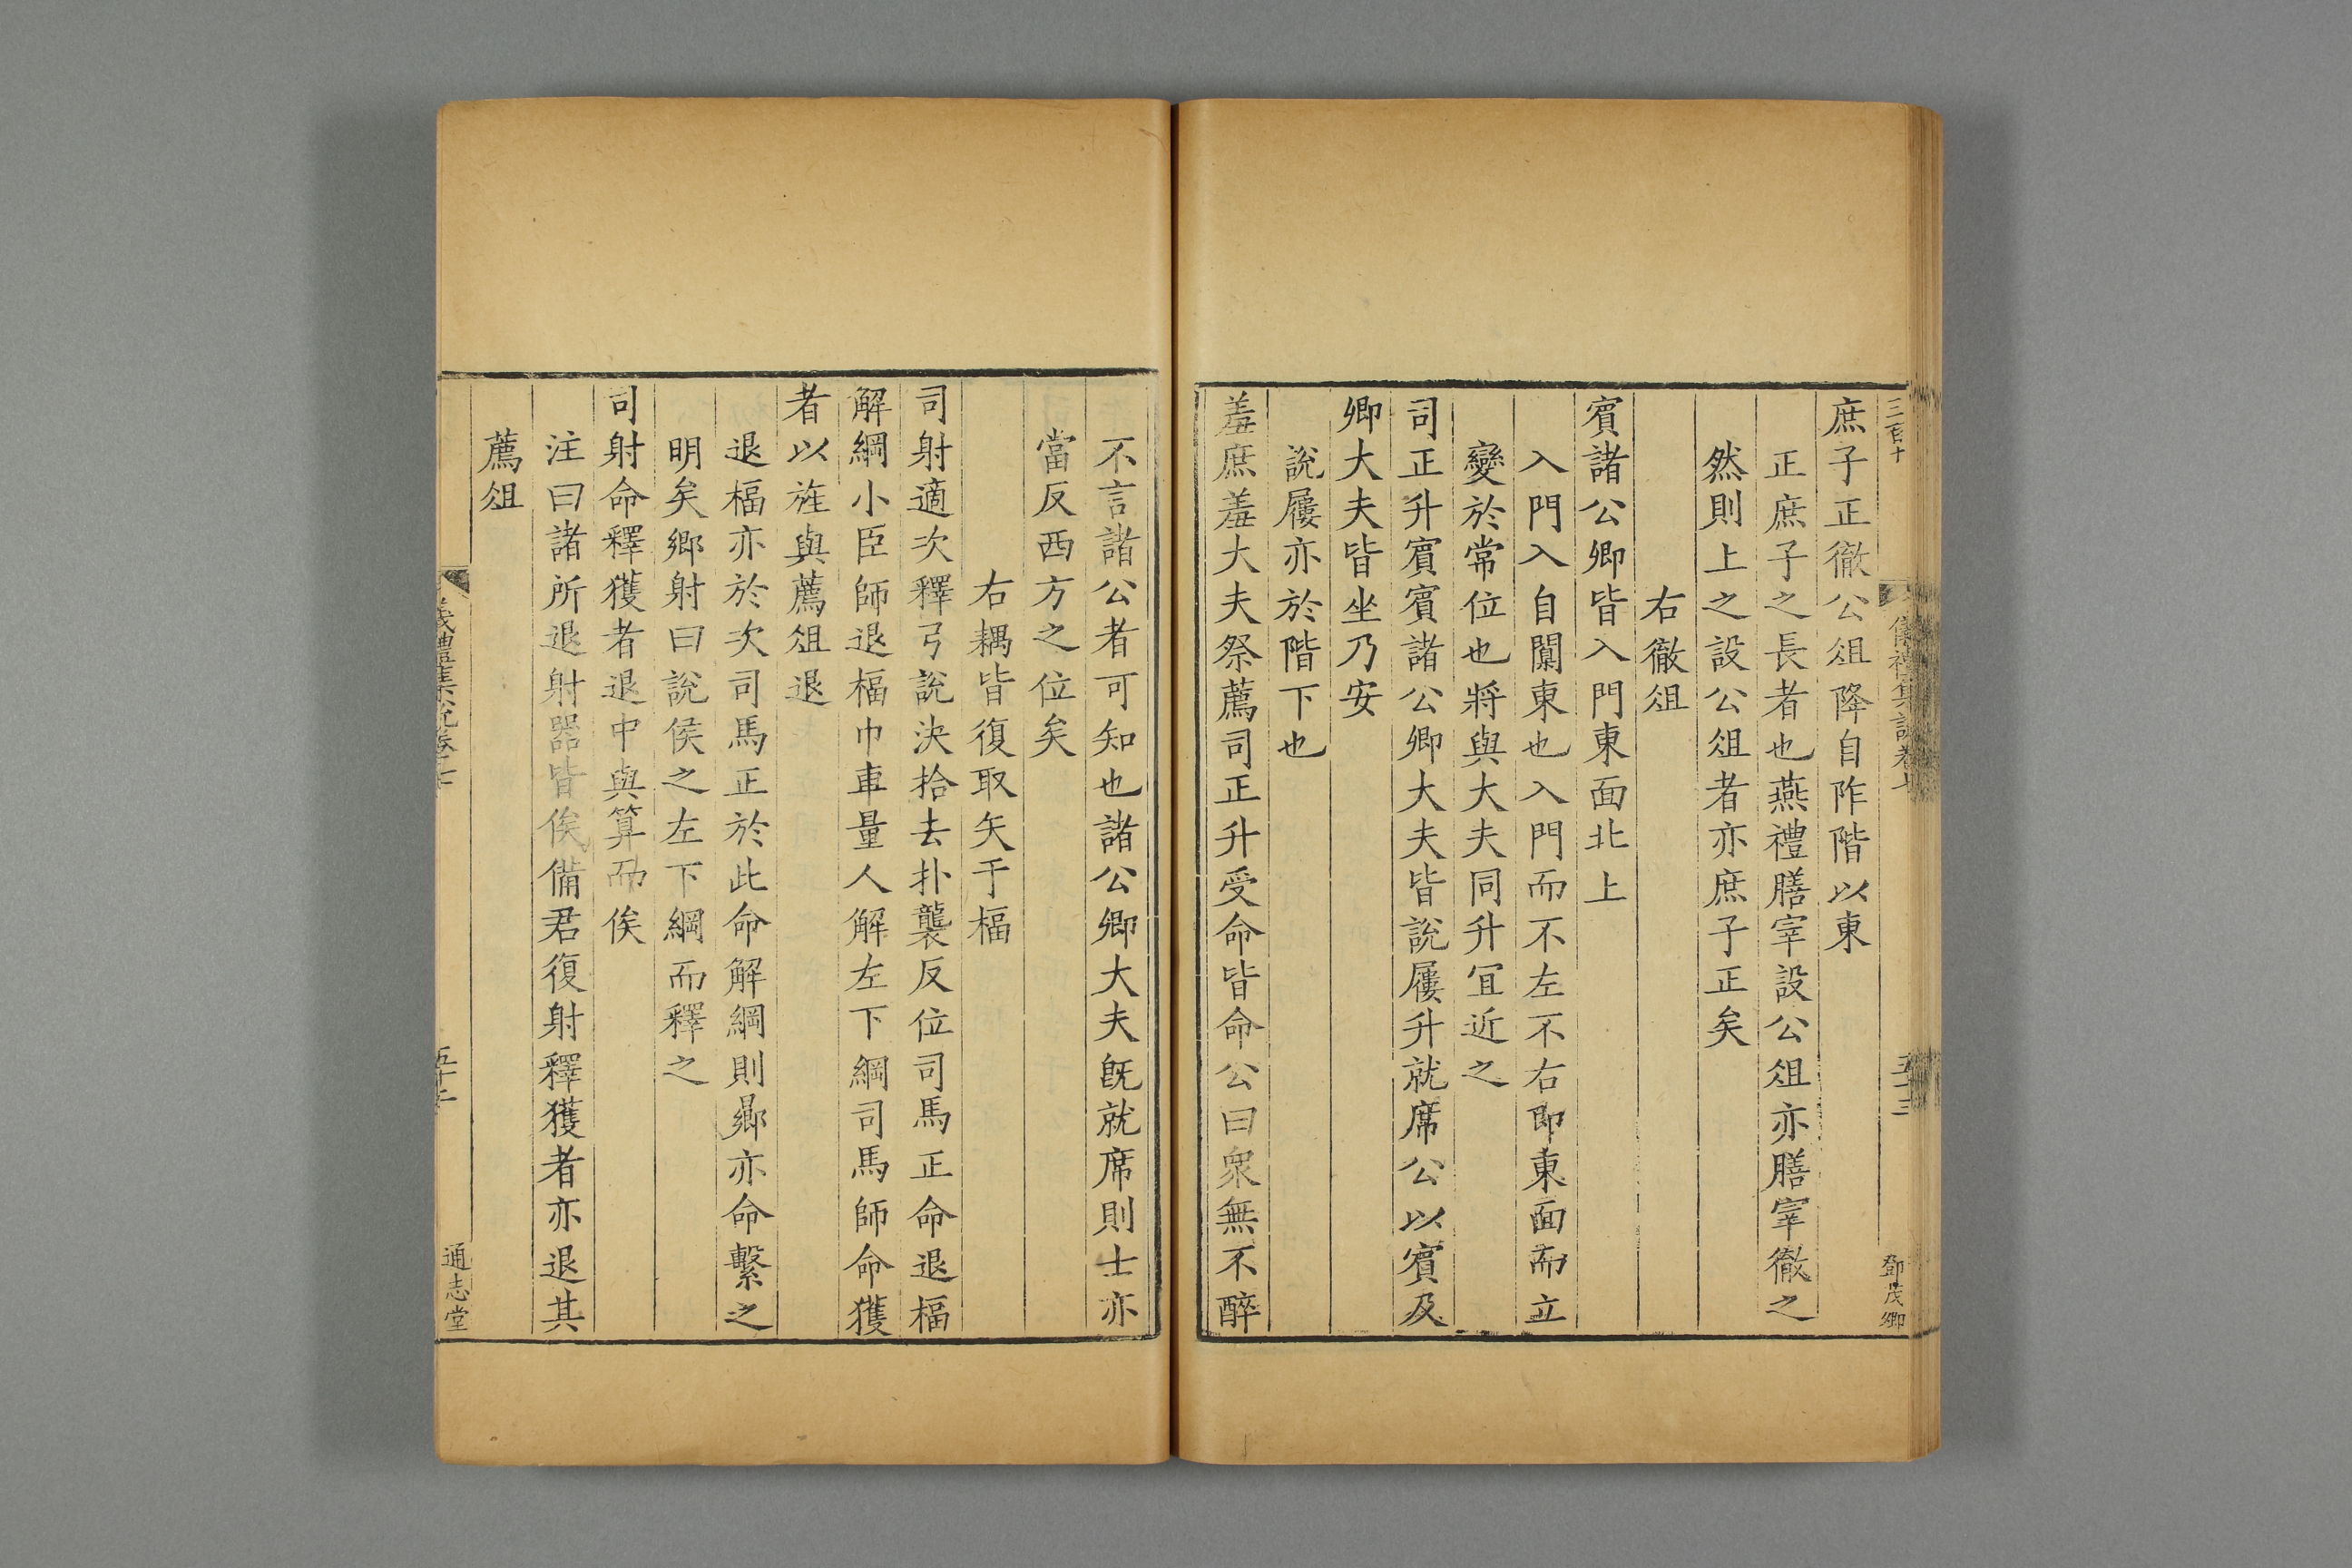 三百十
儀禮集說卷七
五十三
鄧茂卿
庶子正徹公俎降自阼階以東
正庶子之長者也燕禮膳宰設公俎亦膳宰徹之
然則上之設公俎者亦庶子正矣
右徹俎
賓諸公卿皆入門東面北上
入門入自闑東也入門而不左不右即東面而立
變於常位也將與大夫同升冝近之
司正升賓賓諸公卿大夫皆說屨升就席公以賓及
卿大夫皆坐乃安
說屨亦於階下也
羞庶羞大夫祭薦司正升受命皆命公曰衆無不醉
不言諸公者可知也諸公卿大夫既就席則士亦
當反西方之位矣
右耦皆復取矢于楅
司射適次釋弓說決拾去扑襲反位司馬正命退楅
解綱小臣師退楅巾車量人解左下綱司馬師命獲
者以旌與薦俎退
退楅亦於次司馬正於此命解綱則鄉亦命繫之
明矣鄉射曰說侯之左下綱而釋之
司射命釋獲者退中與算而俟
注曰諸所退射器皆俟備君復射釋獲者亦退其
薦俎
儀禮集說卷七
五十二
通志堂